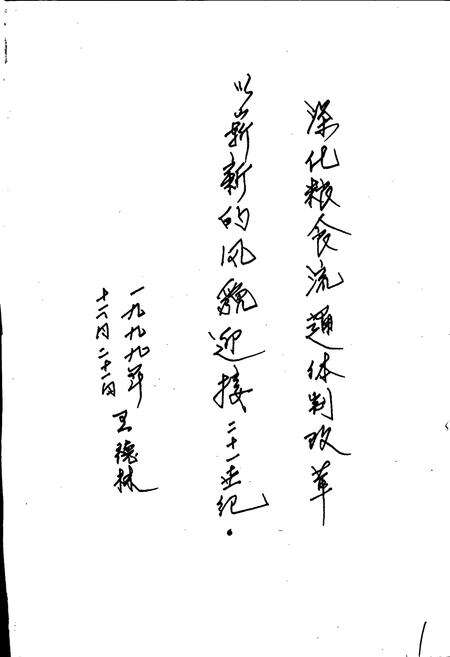 深化粮食流通体制改革
以崭新的风貌迎接二十一世纪.
一九九九年
十一月二十一日
王德林